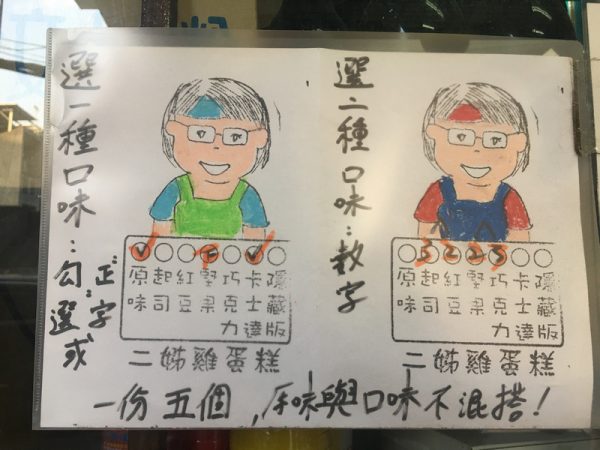 選一種口味：勾選或
"正"字
原味 起司 紅豆 堅果 巧克力 卡士達 隱藏版
二姊雞蛋糕
選二種口味：数字
3 2 2 3
原味 起司 紅豆 堅果 巧克力 卡士達 隱藏版
二姊雞蛋糕
一份五個，原味與口味不混搭！